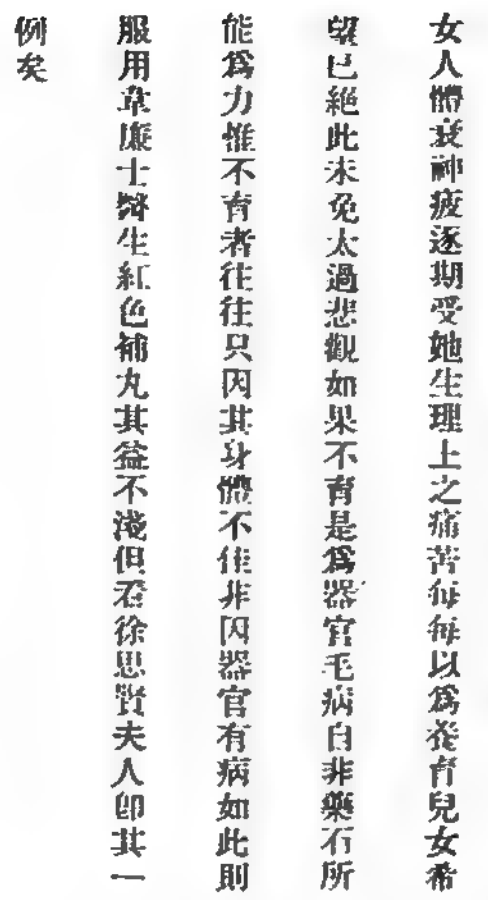 女人體衰神疲逐期受她生理上之痛苦每每以爲養育兒女希
望已絕此未免太過悲觀如果不育是爲器官毛病自非藥石所
能爲力惟不育者往往只因其身體不佳非因器官有病如此則
服用韋廉士醫生紅色補丸其益不淺但看徐思賢夫人卽其一
例矣